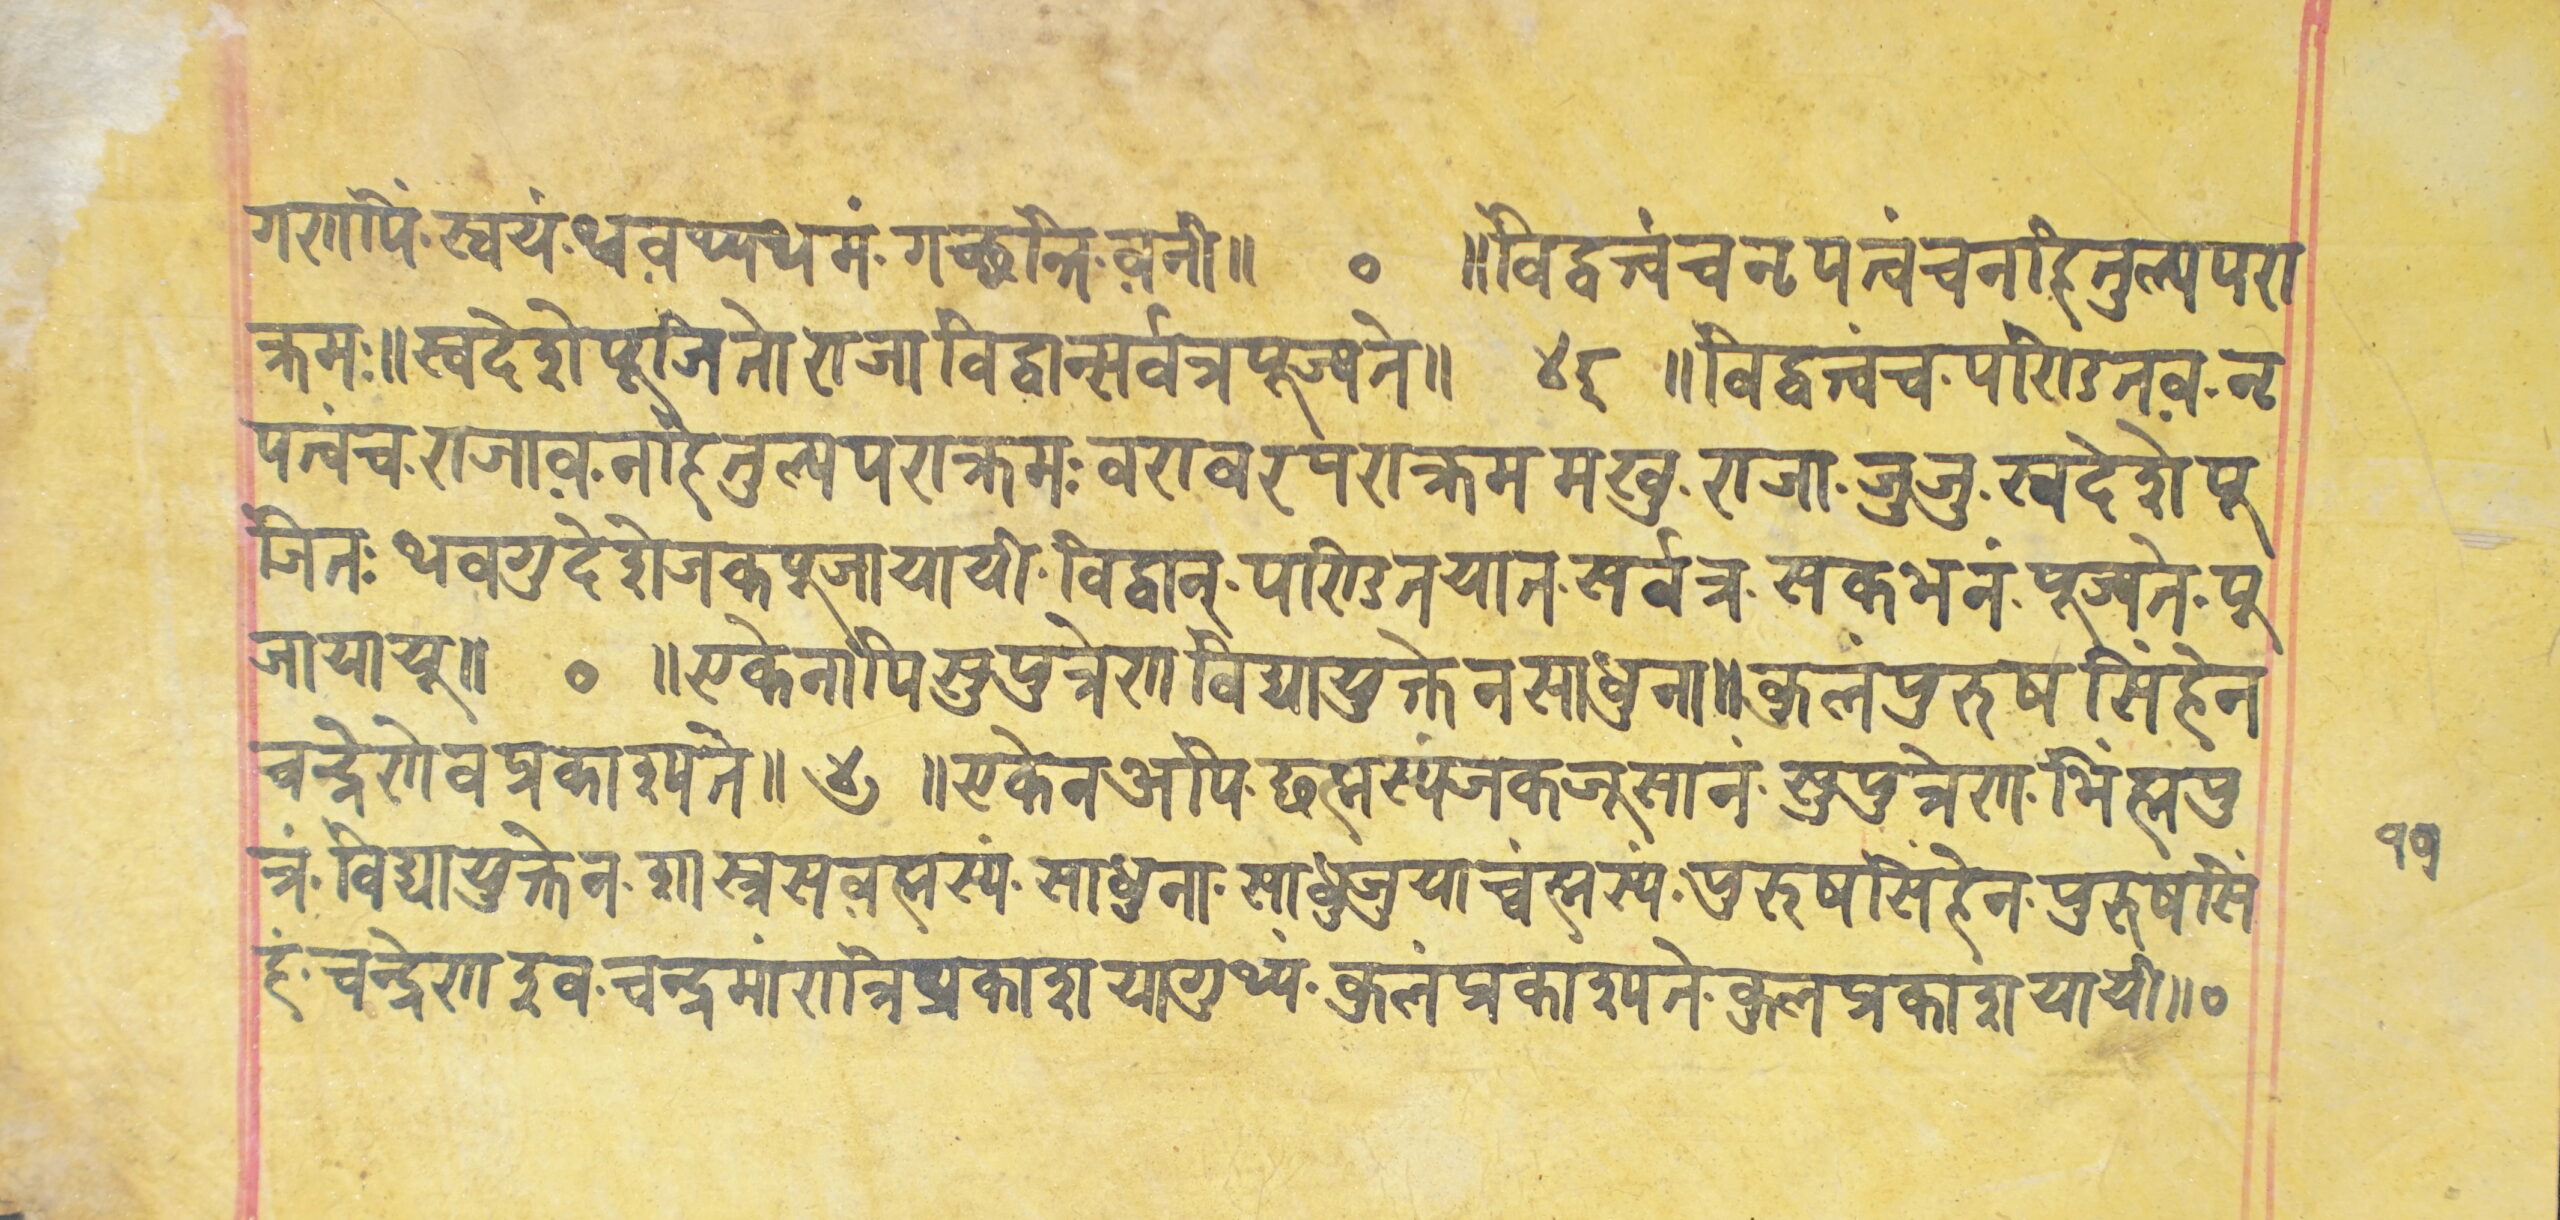 गरापिं· स्वयं· थवप्यथमं· गच्छन्ति· वनी॥ ० ॥विद्वत्त्वंचनृपत्वंचनाहितुल्यपरा
क्रमः॥स्वदेशेपूजितोराजाविद्वान्सर्वत्रपूज्यते॥ ४६ ॥विद्वत्त्वंच·पण्डितव·नृ
पत्वंच·राजाव·नहितुल्यपराक्रमः वरावरपराक्रममखु·राजा·जुजु·स्वदेशेपू
जितः थवगुदेशेजकपूजायायी·विद्वान्·पण्डितयात·सर्वत्र·सकभनं·पूज्यते·पू
जायायू॥ ० ॥एकेनापिसुपुत्रेणविद्यायुक्तेनसाधुना॥कुलंपुरुषसिंहेन
चन्द्रेणेवप्रकाश्यते॥ ४७ ॥एकेनअपि·छह्मस्यंजकजूसानं·सुपुत्रेण·भिंह्मपु
त्रं·विद्यायुक्तेन·शास्त्रसवह्मस्यं·साधुना·साधुजुयाच्वंह्मस्यं·पुरुषसिंहेन·पुरुषसिं
हं·चन्द्रेणइव·चन्द्रमांरात्रिप्रकाशयागुथ्यं·कुलंप्रकाश्यते·कुलप्रकाशयायी॥०
११